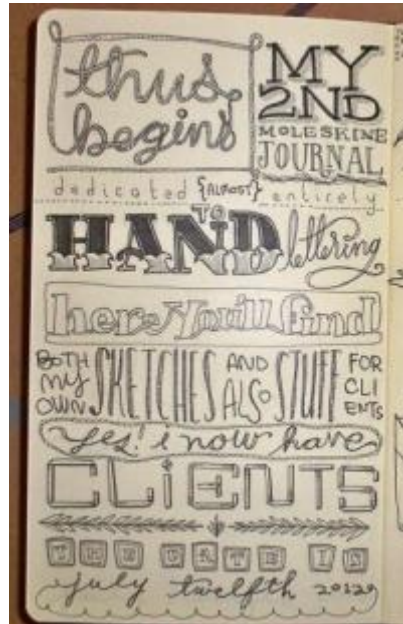 thus begins
MY 2ND MOLESKINE JOURNAL
dedicated {ALMOST} entirely
TO
HAND lettering
here You'll find
BOTH my OWN SKETCHES AND ALSO STUFF FOR CLIENTS
yes! i now have
CLiENTS
THE DATE IS
july twelfth 2012